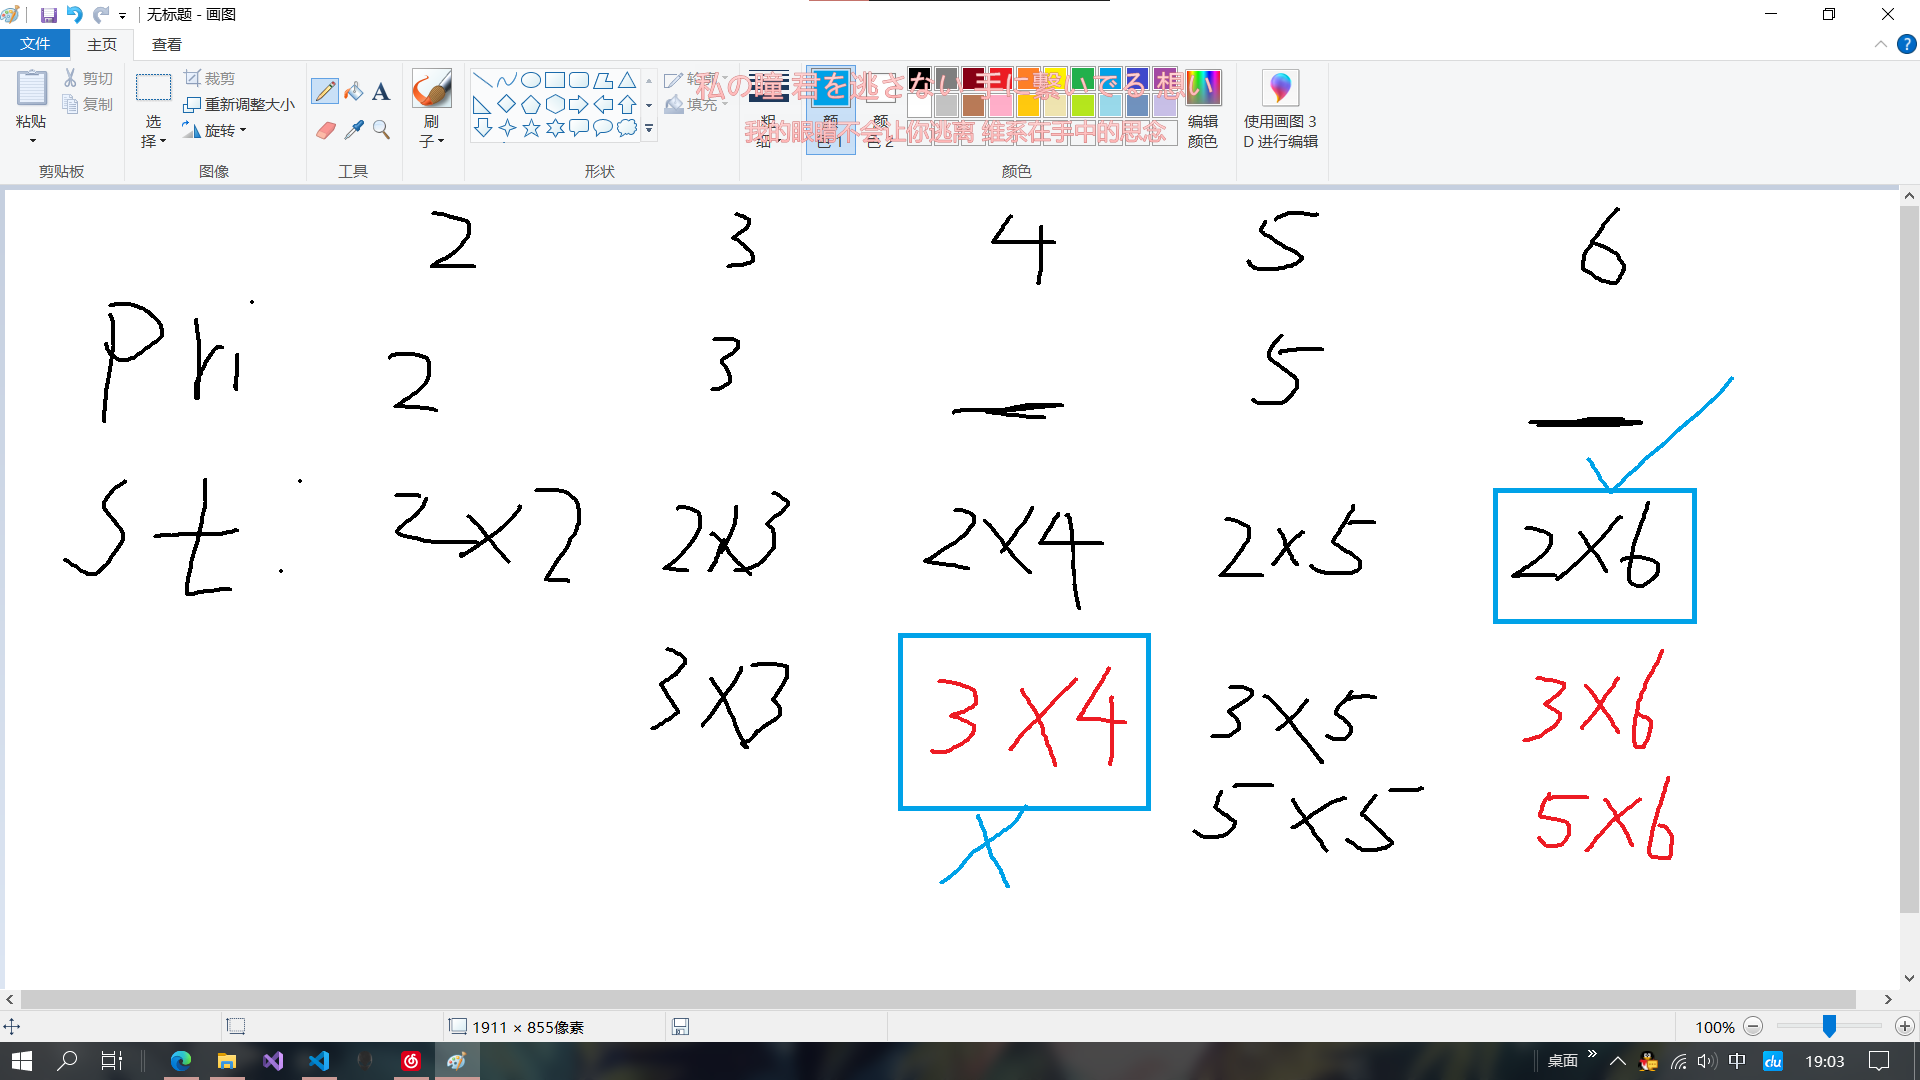 无标题 - 画图
文件 主页 查看
粘贴
剪切
复制
剪贴板
选择
裁剪
重新调整大小
旋转
图像
A
工具
刷子
形状
轮廓
填充
粗细
颜色 1
颜色 2
编辑颜色
颜色
使用画图 3D 进行编辑
私の瞳 君を逃さない 手に繋いでる 想い
我的眼瞳不会让你逃离 维系在手中的思念
2 3 4 5 6
Pri 2 3 — 5 —
St: 2×2 2×3 2×4 2×5 2×6
3×3 3×4 3×5 3×6
5×5 5×6
×
1911 × 855像素
100%
桌面 中 du 19:03